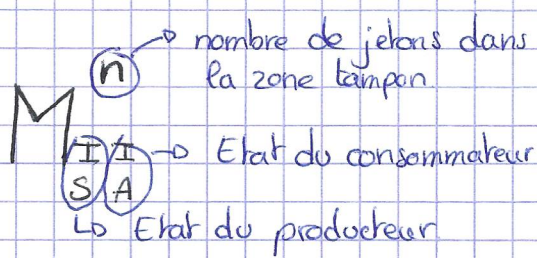 nombre de jetons dans
n la zone tampon
M
I I Etat du consommateur
S A
Etat du producteur